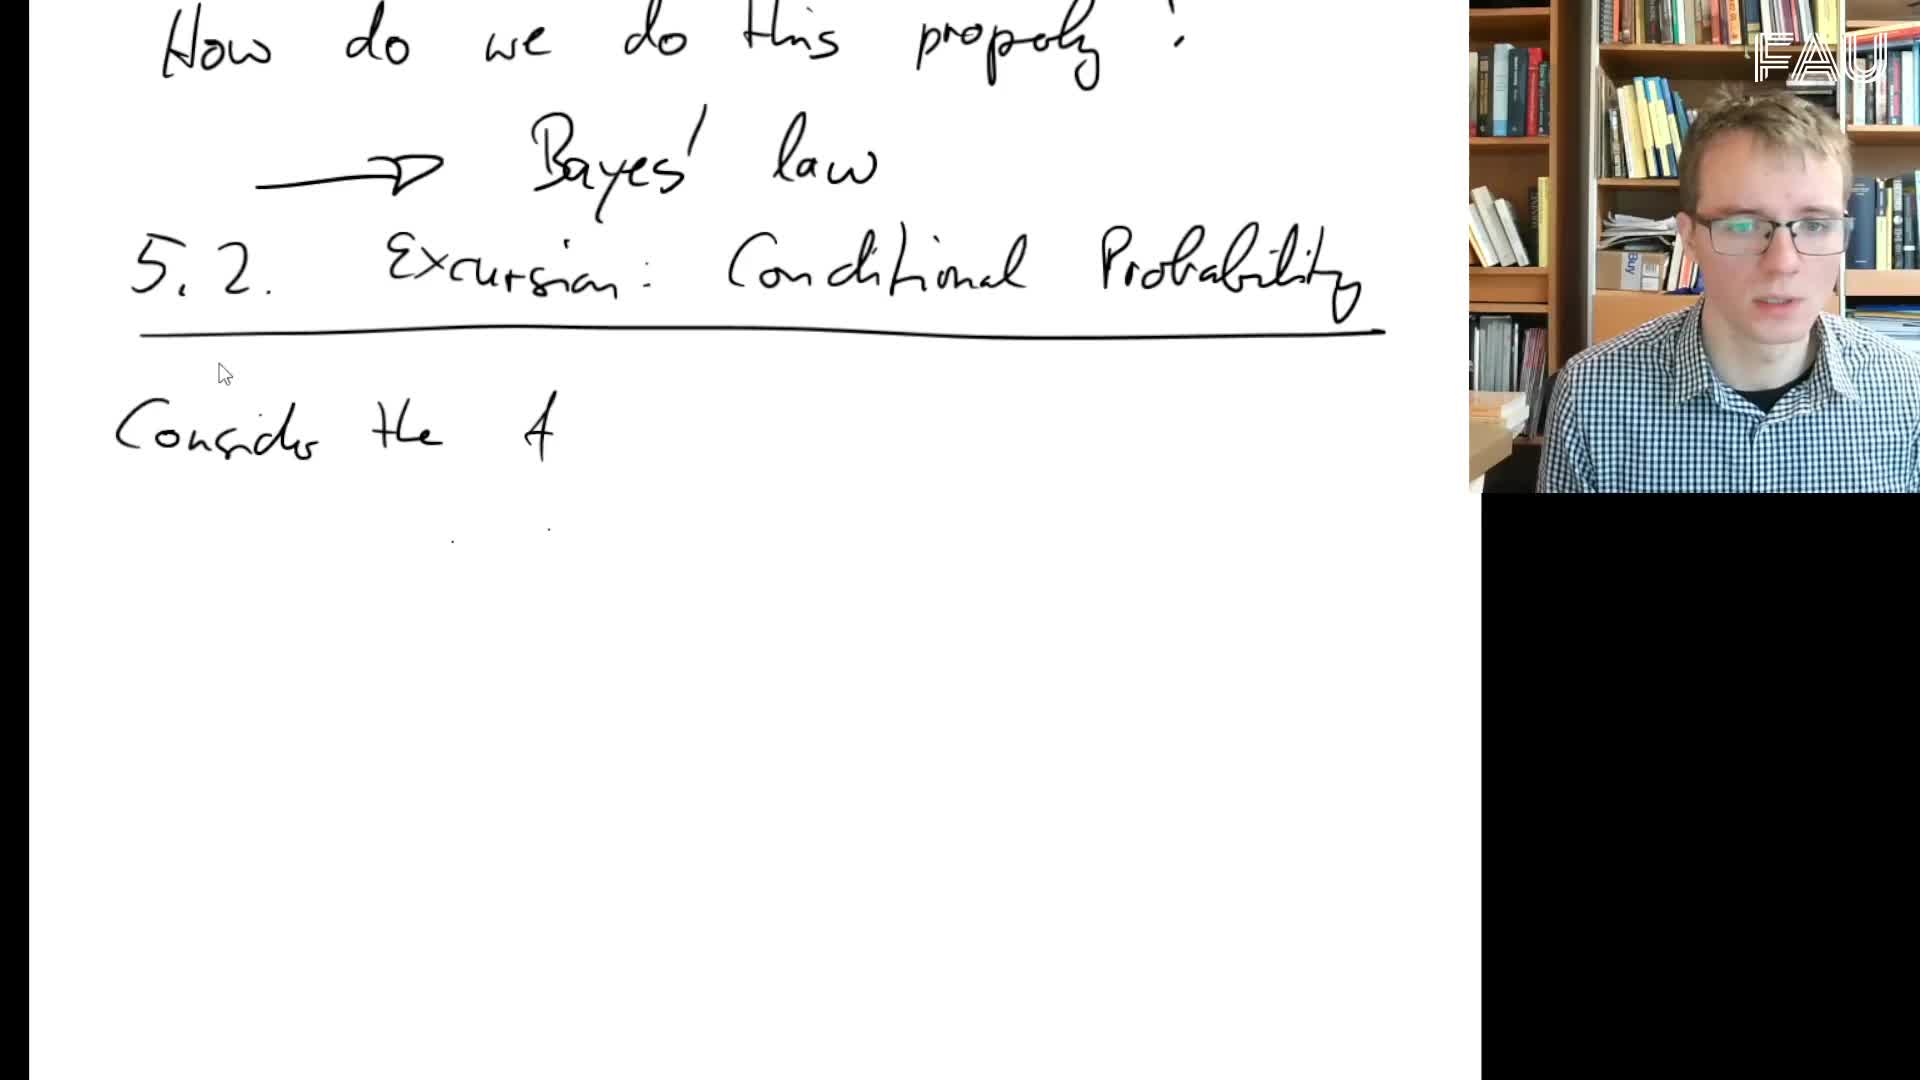 How do we do this properly?
Bayes' law
5.2. Excursion: Conditional Probability
Consider the f
FAU
Buy